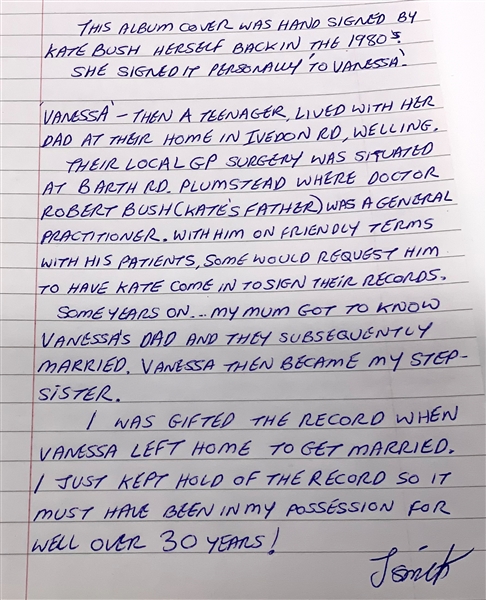 THIS ALBUM COVER WAS HAND SIGNED BY
KATE BUSH HERSELF BACK IN THE 1980s.
SHE SIGNED IT PERSONALLY 'TO VANESSA'.
'VANESSA' - THEN A TEENAGER, LIVED WITH HER
DAD AT THEIR HOME IN IVEDON RD, WELLING.
THEIR LOCAL GP SURGERY WAS SITUATED
AT BARTH RD. PLUMSTEAD WHERE DOCTOR
ROBERT BUSH (KATE'S FATHER) WAS A GENERAL
PRACTITIONER. WITH HIM ON FRIENDLY TERMS
WITH HIS PATIENTS, SOME WOULD REQUEST HIM
TO HAVE KATE COME IN TO SIGN THEIR RECORDS.
SOME YEARS ON... MY MUM GOT TO KNOW
VANESSA'S DAD AND THEY SUBSEQUENTLY
MARRIED. VANESSA THEN BECAME MY STEP-
SISTER.
I WAS GIFTED THE RECORD WHEN
VANESSA LEFT HOME TO GET MARRIED.
I JUST KEPT HOLD OF THE RECORD SO IT
MUST HAVE BEEN IN MY POSSESSION FOR
WELL OVER 30 YEARS!